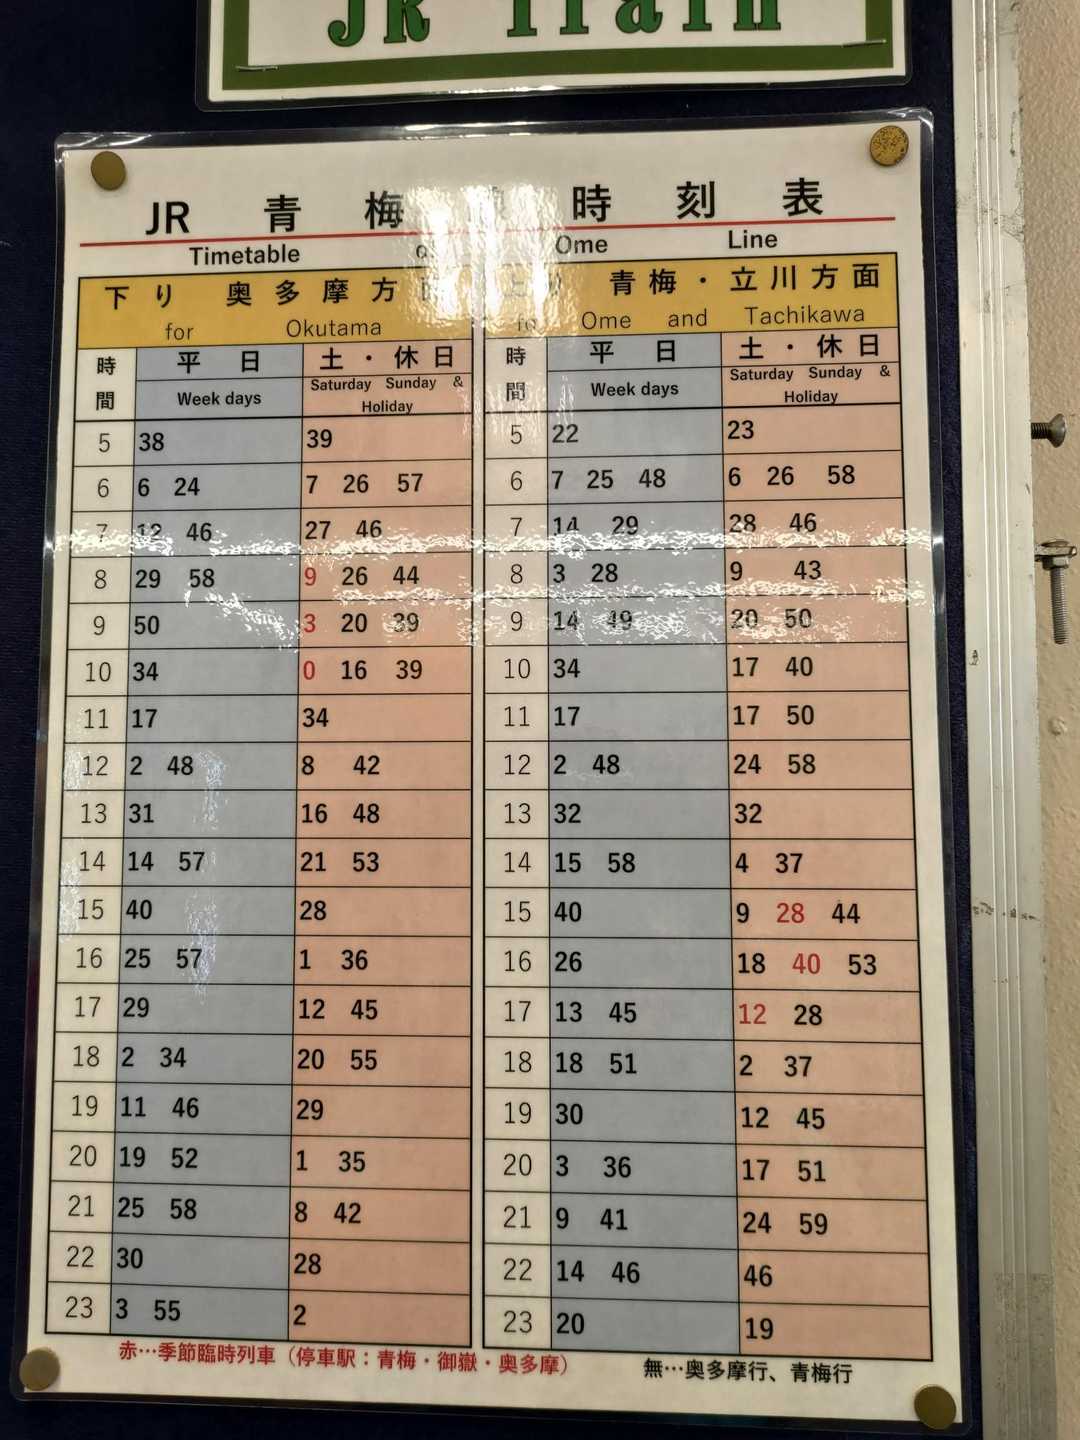 JR Train
JR 青 梅 時 刻 表
Timetable Ome Line
下り 奥多摩方
for Okutama
上り 青梅・立川方面
Ome and Tachikawa
時間 平日 土・休日
Week days Saturday Sunday & Holiday
時間 平日 土・休日
Week days Saturday Sunday & Holiday
5 38 39 5 22 23
6 6 24 7 26 57 6 7 25 48 6 26 58
7 12 46 27 46 7 14 29 28 46
8 29 58 9 26 44 8 3 28 9 43
9 50 3 20 39 9 14 49 20 50
10 34 0 16 39 10 34 17 40
11 17 34 11 17 17 50
12 2 48 8 42 12 2 48 24 58
13 31 16 48 13 32 32
14 14 57 21 53 14 15 58 4 37
15 40 28 15 40 9 28 44
16 25 57 1 36 16 26 18 40 53
17 29 12 45 17 13 45 12 28
18 2 34 20 55 18 18 51 2 37
19 11 46 29 19 30 12 45
20 19 52 1 35 20 3 36 17 51
21 25 58 8 42 21 9 41 24 59
22 30 28 22 14 46 46
23 3 55 2 23 20 19
赤…季節臨時列車（停車駅：青梅・御嶽・奥多摩）
無…奥多摩行、青梅行